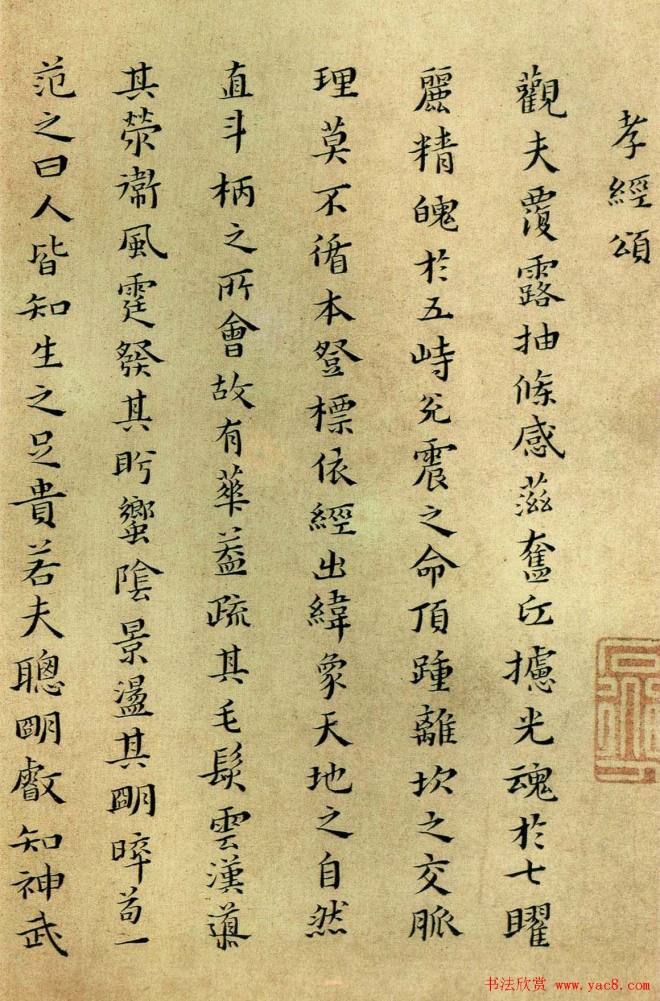 孝經頌
觀夫覆露抽條感蕬奮㐌攄光魂於七曜
麗精魄於五峙兊震之命頂踵離坎之交脈
理莫不循本登標依經出緯象天地之自然
直斗柄之所會故有華葢疏其毛髮雲漢導
其榮衞風霆發其肹蠁陰景盪其朙晬茍一
范之曰人皆知生之足貴若夫聰朙叡知神武
书法欣赏 www.yac8.com